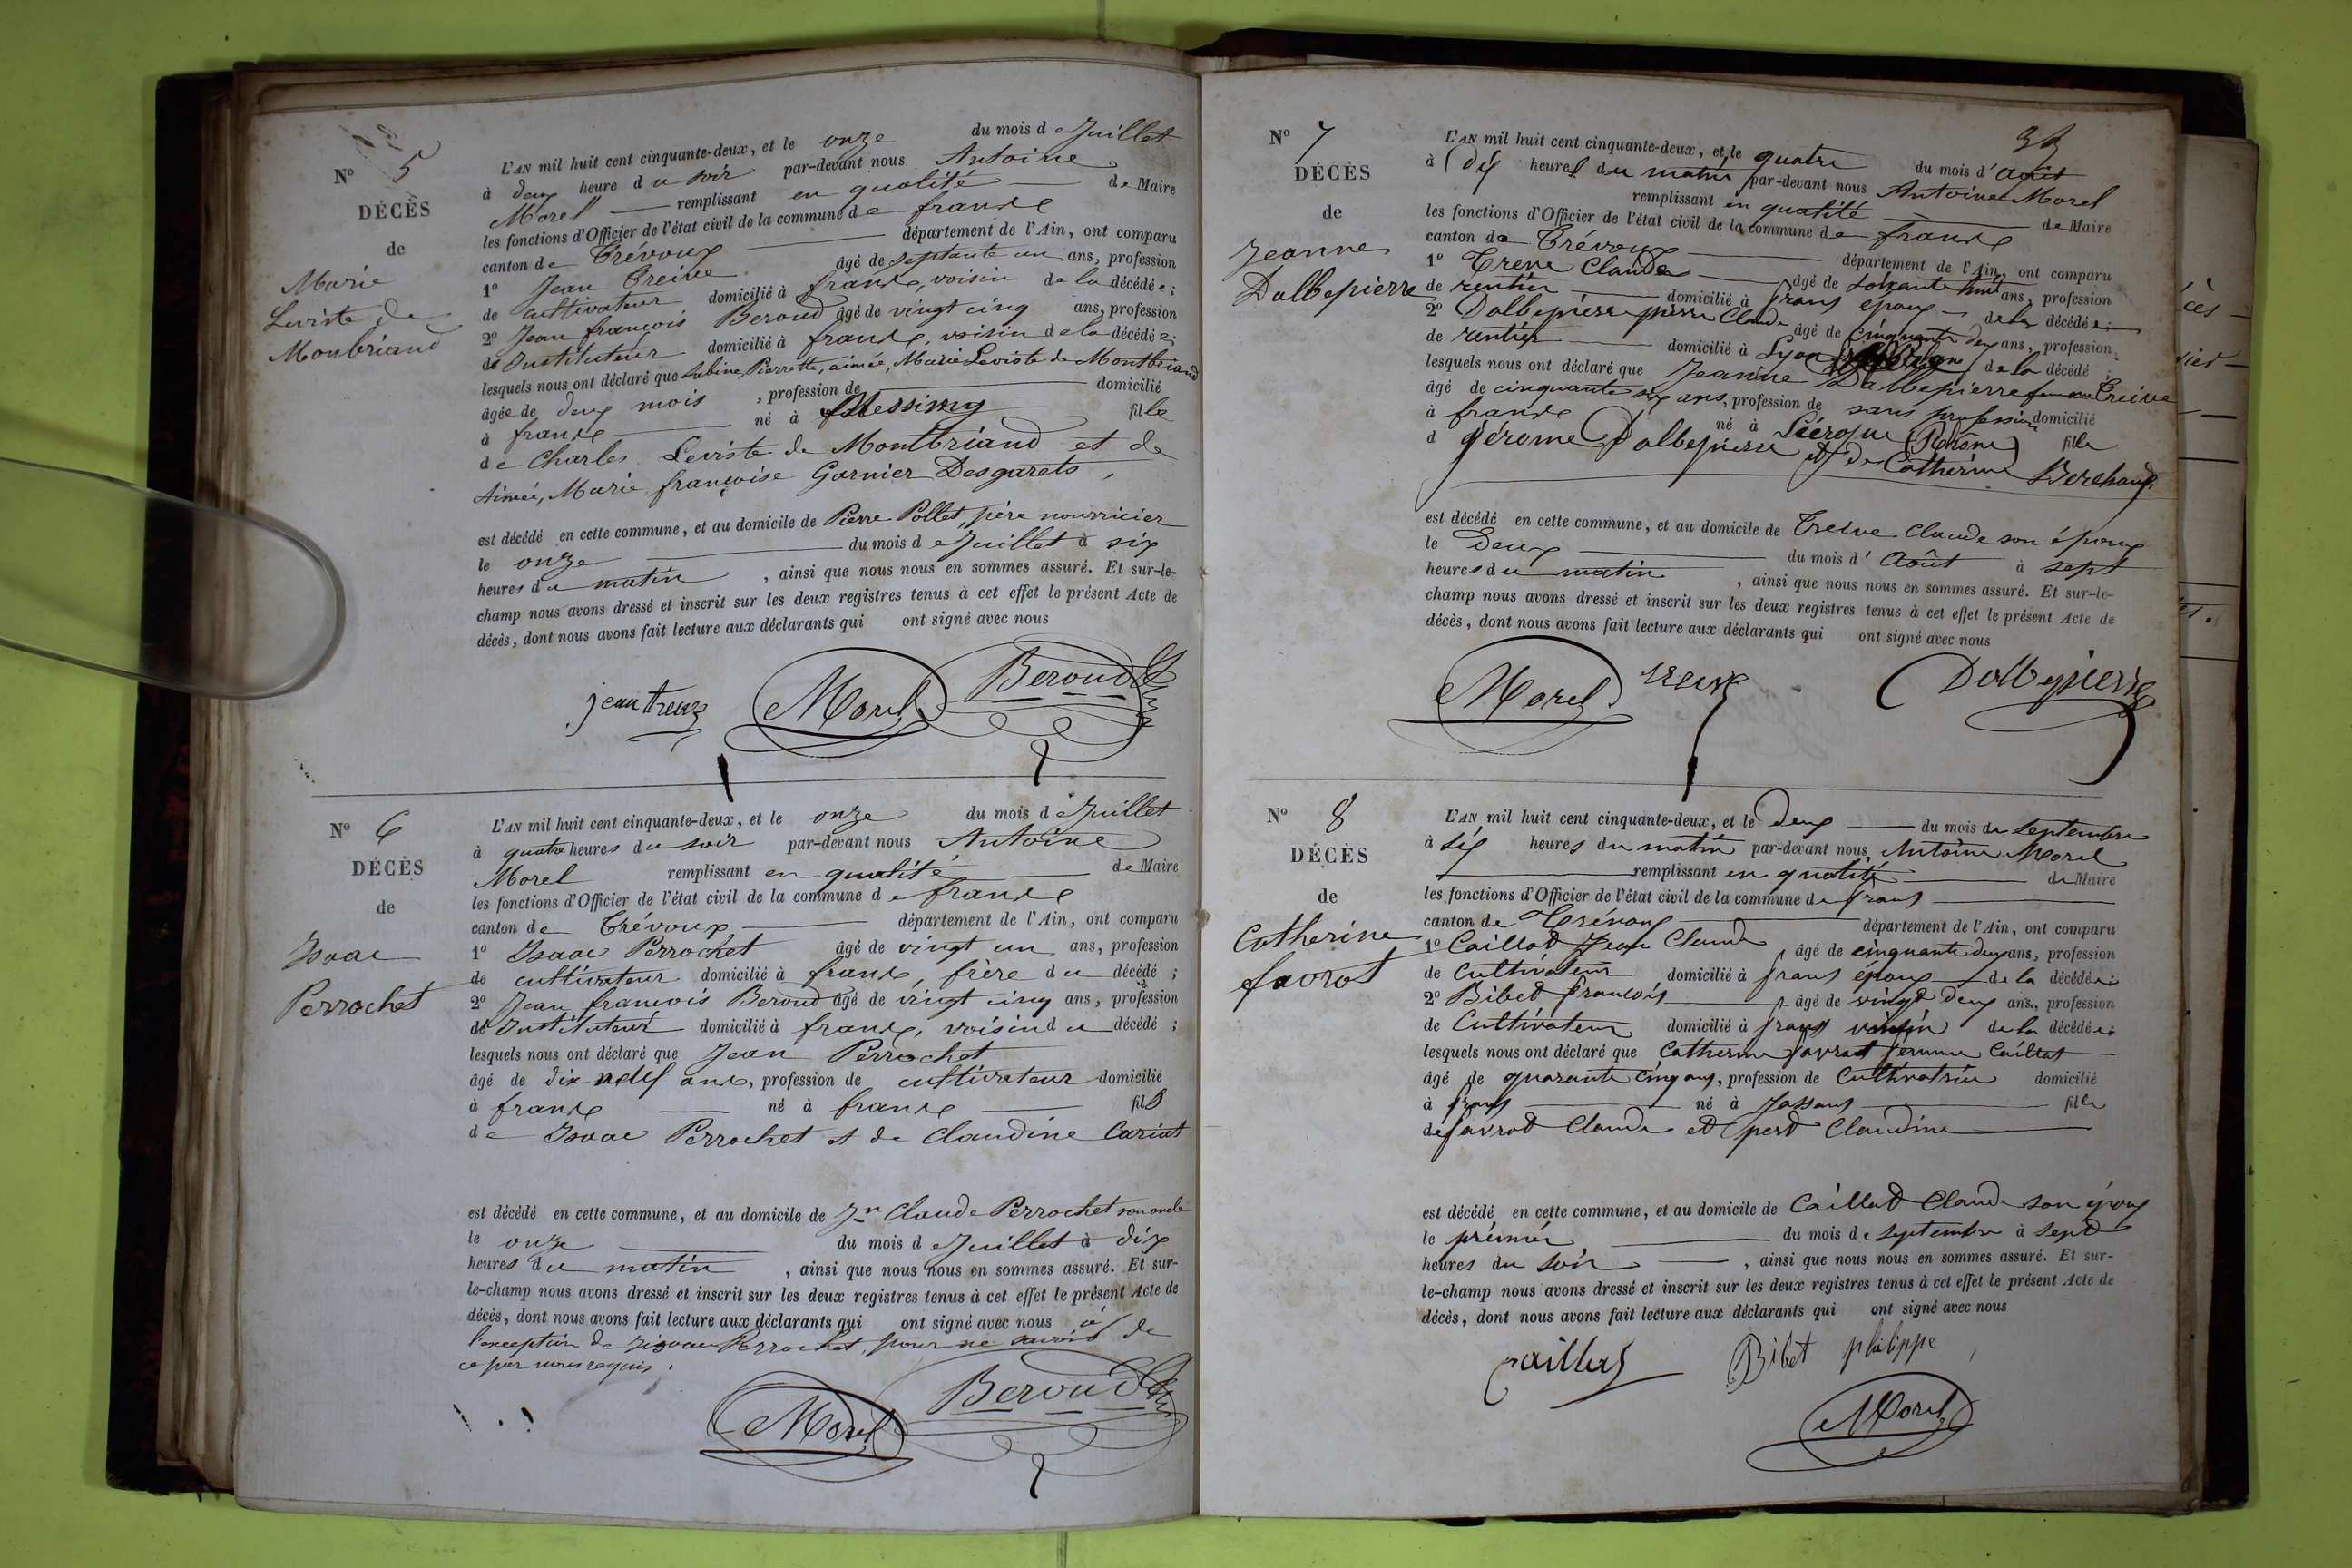 N° 5
DÉCÈS
de
Marie
Leviste de
Monbriand
L'AN mil huit cent cinquante-deux, et le onze du mois de Juillet
à deux heure du soir par-devant nous Antoine
Morel remplissant en qualité de Maire
les fonctions d'Officier de l'état civil de la commune de franse
canton de Trévoux département de l'Ain, ont comparu
1° Jean Treive âgé de septante un ans, profession
de cultivateur domicilié à franse, voisin de la décédée;
2° Jean françois Beroud âgé de vingt cinq ans, profession
de Instituteur domicilié à franse, voisin de la décédée;
lesquels nous ont déclaré que Sabine, Pierrette, aimée, Marie Leviste de Montbriand
âgée de deux mois, profession de domicilié
à franse né à Messimy fille
de Charles Leviste de Montbriand et de
Aimée, Marie, françoise Garnier Desgarets,
est décédé en cette commune, et au domicile de Pierre Pollet, père nourricier
le onze du mois de Juillet à six
heures du matin, ainsi que nous nous en sommes assuré. Et sur-le-
champ nous avons dressé et inscrit sur les deux registres tenus à cet effet le présent Acte de
décès, dont nous avons fait lecture aux déclarants qui ont signé avec nous
jean Morel Beroud
N° 6
DÉCÈS
de
Isaac
Perrochet
L'AN mil huit cent cinquante-deux, et le onze du mois de Juillet
à quatre heures du soir par-devant nous Antoine
Morel remplissant en qualité de Maire
les fonctions d'Officier de l'état civil de la commune de franse
canton de Trévoux département de l'Ain, ont comparu
1° Isaac Perrochet âgé de vingt un ans, profession
de cultivateur domicilié à franse, frère du décédé;
2° Jean françois Beroud âgé de vingt cinq ans, profession
de Instituteur domicilié à franse, voisin du décédé;
lesquels nous ont déclaré que Jean Perrochet
âgé de dix neuf ans, profession de cultivateur domicilié
à franse né à franse fils
de Isaac Perrochet et de Claudine Cariat
est décédé en cette commune, et au domicile de Jn Claude Perrochet son oncle
le onze du mois de Juillet à dix
heures du matin, ainsi que nous nous en sommes assuré. Et sur-
le-champ nous avons dressé et inscrit sur les deux registres tenus à cet effet le présent Acte de
décès, dont nous avons fait lecture aux déclarants qui ont signé avec nous à
l'exception de Perrochet, pour ne savoir de
ce par nous requis.
Morel Beroud
N° 7
DÉCÈS
de
Jeanne
Dalbepierre
L'AN mil huit cent cinquante-deux, et le quatre du mois d'août
à dix heures du matin par-devant nous Antoine Morel
remplissant en qualité de Maire
les fonctions d'Officier de l'état civil de la commune de franse
canton de Trévoux département de l'Ain, ont comparu
1° Treve Claude âgé de soixante huit ans, profession
de rentier domicilié à frans époux de la décédée;
2° Dalbepierre pierre Claude âgé de cinquante deux ans, profession
de rentier domicilié à Lyon de la décédé
lesquels nous ont déclaré que Jeanne Dalbepierre femme Treive
âgé de cinquante six ans, profession de sans profession domicilié
à franse né à (Rhône) fille
d gérome Dalbepierre et de Catherine
est décédé en cette commune, et au domicile de Treive Claude son époux
le Deux du mois d'Août à sept
heures du matin, ainsi que nous nous en sommes assuré. Et sur-le-
champ nous avons dressé et inscrit sur les deux registres tenus à cet effet le présent Acte de
décès, dont nous avons fait lecture aux déclarants qui ont signé avec nous
Morel Dalbepierre
N° 8
DÉCÈS
de
Catherine
favrot
L'AN mil huit cent cinquante-deux, et le deux du mois de septembre
à six heures du matin par-devant nous Antoine Morel
remplissant en qualité de Maire
les fonctions d'Officier de l'état civil de la commune de frans
canton de Trévoux département de l'Ain, ont comparu
1° Caillat Jean Claude âgé de cinquante deux ans, profession
de Cultivateur domicilié à frans époux de la décédée;
2° Bibet françois âgé de vingt deux ans, profession
de Cultivateur domicilié à frans voisin de la décédée;
lesquels nous ont déclaré que Catherine favrot femme Caillat
âgé de quarante cinq ans, profession de Cultivatrice domicilié
à frans né à Jassans fille
de favrot Claude et Claudine
est décédé en cette commune, et au domicile de Caillat Claude son époux
le prémier du mois de septembre à sept
heures du soir, ainsi que nous nous en sommes assuré. Et sur-
le-champ nous avons dressé et inscrit sur les deux registres tenus à cet effet le présent Acte de
décès, dont nous avons fait lecture aux déclarants qui ont signé avec nous
Bibet philippe
Morel